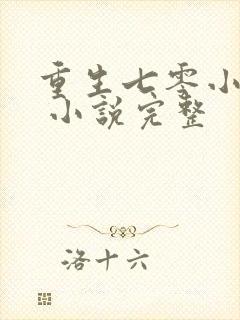 重生七零小
小說完整
洛十六